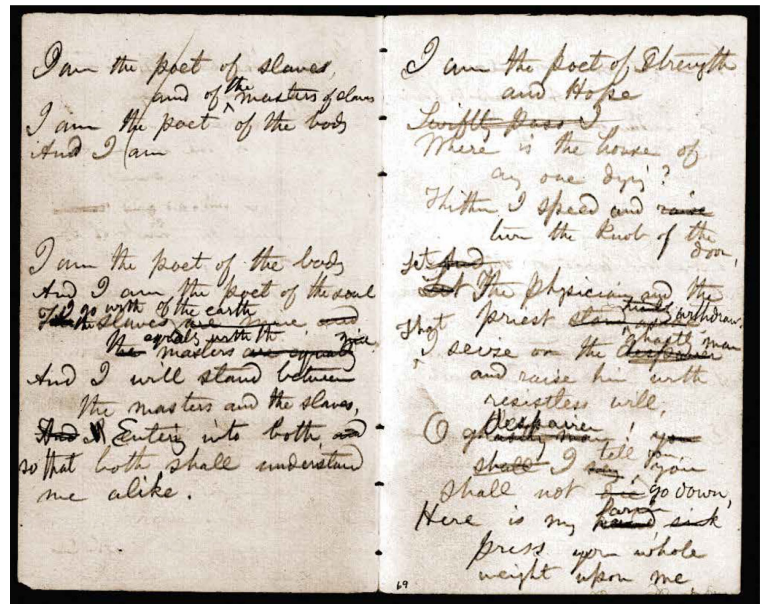 I am the poet of slaves,
and of the masters of slaves
I am the poet of the body
And I am
I am the poet of the body
And I am the poet of the soul
I go with the slaves of the earth are mine, and
equally with the the masters are equally mine
And I will stand between
the masters and the slaves,
And I Entering into both, and
so that both shall understand
me alike.
I am the poet of Strength
and Hope
Swiftly pass I
Where is the house of
any one dying?
Thither I speed and raise
turn the knob of the
door,
Let and
Let The physician and the
priest stand aside, withdraw,
That I seize on the ghastly man despairer
and raise him with
resistless will;
O despairer ghastly man! you
shall I tell say, you
shall not die go down,
Here is my hand sick
press your whole
weight upon me
69